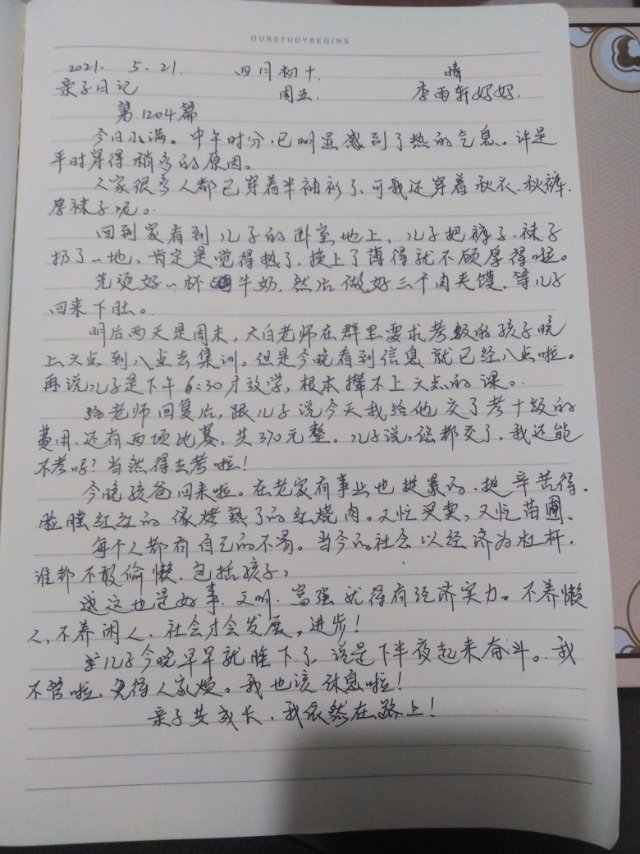 OURSTUDYBEGINS
2021. 5. 21. 四月初十 晴
亲子日记 周五. 李雨轩妈妈.
第1204篇
今日小满。中午时分,已明显感到了热的气息。许是
平时穿得稍多的原因。
人家很多人都已穿着半袖衫了、可我还穿着秋衣.秋裤.
厚袜子呢。
回到家看到儿子的卧室地上、儿子把裤子.袜子
扔了一地、肯定是觉得热了.换上了薄得就不顾厚得啦。
先烫好一杯牛奶.然后做好三个肉夹馍.等儿子
回来下肚。
明后两天是周末,大白老师在群里要求考级的孩子晚
上六点到八点去集训。但是今晚看到信息就已经八点啦。
再说儿子是下午6:30才放学,根本撵不上六点的课。
给老师回复后,跟儿子说今天我给他交了考十级的
费用.还有两项比赛,共370元整.儿子说:你都交了,我还能
不考吗?当然得去考啦!
今晚孩爸回来啦。在老家有事业也挺累的.挺辛苦得.
脸膛红红的像烤熟了的红烧肉。又忙买卖,又忙苗圃.
每个人都有自己的不易。当今的社会以经济为杠杆.
谁都不敢偷懒.包括孩子,
这也是好事.文明.富强就得有经济实力。不养懒
人,不养闲人.社会才会发展。进步!
儿子今晚早早就睡下了.说是下半夜起来奋斗。我
不管啦,免得人家烦。我也该休息啦!
亲子共成长.我依然在路上!